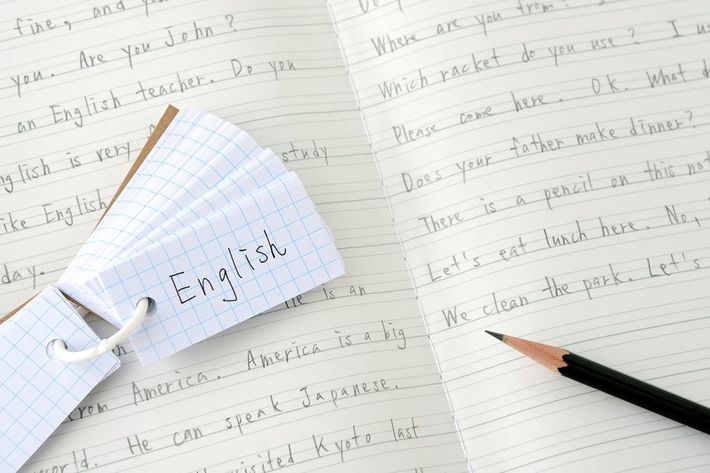 fine, and you?
you. Are you John?
an English teacher. Do you
English is very
study
like English
day.
He is an
from America. America is a big
world. He can speak Japanese.
visited Kyoto last
English
Where are you from? I
Which racket do you use? I
Please come here. OK. What
Does your father make dinner?
There is a pencil on this
Let's eat lunch here. No,
We clean the park. Let's